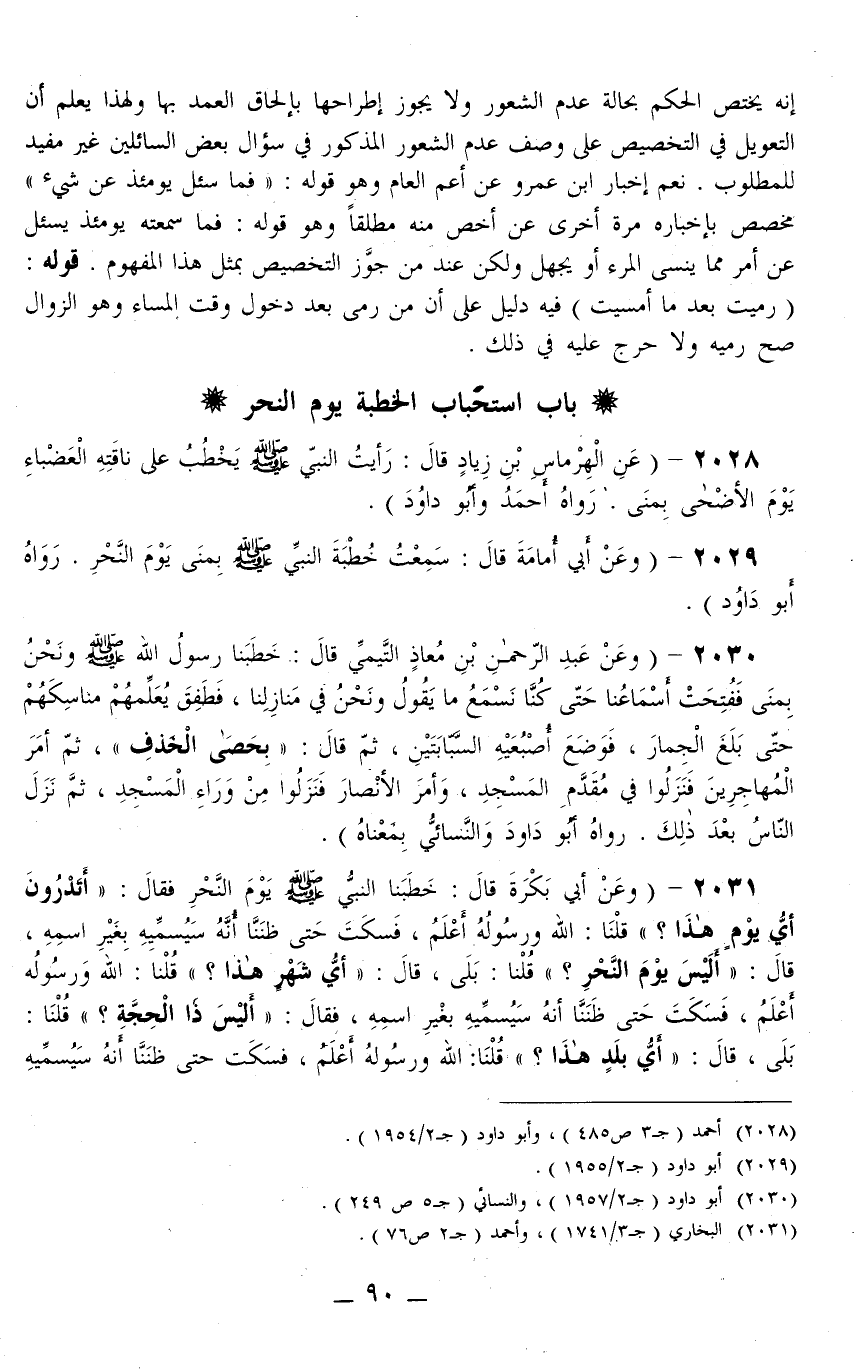 إنه يختص الحكم بحالة عدم الشعور ولا يجوز إطراحها بإلحاق العمد بها ولهذا يعلم أن
التعويل في التخصيص على وصف عدم الشعور المذكور في سؤال بعض السائلين غير مفيد
للمطلوب . نعم إخبار ابن عمرو عن أعم العام وهو قوله : « فما سئل يومئذ عن شيء »
مخصص بإخباره مرة أخرى عن أخص منه مطلقاً وهو قوله : فما سمعته يومئذ يسئل
عن أمر مما ينسى المرء أو يجهل ولكن عند من جوَّز التخصيص بمثل هذا المفهوم . قوله :
( رميت بعد ما أمسيت ) فيه دليل على أن من رمى بعد دخول وقت المساء وهو الزوال
صح رميه ولا حرج عليه في ذلك .
❋ باب استحباب الخطبة يوم النحر ❋
٢٠٢٨ – ( عَنِ الْهِرْماسِ بْنِ زِيادٍ قالَ : رَأيتُ النبيّ ﷺ يَخْطُبُ على ناقَتِهِ الْعَضْباءِ
يَوْمَ الأَضْحٰى بِمنَى . رَواهُ أَحمَدُ وأَبُو داوُدَ ) .
٢٠٢٩ – ( وعَنْ أَبي أُمامَةَ قالَ : سَمِعْتُ خُطبَةَ النبيِّ ﷺ بِمنَى يَوْمَ النَّحْرِ . رَوَاهُ
أَبو دَاوُد ) .
٢٠٣٠ – ( وعَنْ عَبدِ الرّحمٰنِ بْنِ مُعاذٍ التَّيمِيِّ قالَ : خَطَبَنا رسولُ الله ﷺ ونَحْنُ
بِمنَى فَفُتِحَتْ أَسْمَاعُنا حَتّى كُنَّا نَسْمَعُ ما يَقُولُ ونَحْنُ في مَنَازِلِنا ، فَطَفِقَ يُعَلِّمهُمْ مناسِكَهُمْ
حتّى بَلَغَ الْجِمارَ ، فَوَضَعَ أُصْبُعَيْهِ السَّبّابَتَيْنِ ، ثمّ قالَ : « بِحَصَى الْخَذفِ » ، ثمّ أمَرَ
الْمُهاجِرِينَ فَنَزَلُوا في مُقَدَّمِ المَسْجِدِ ، وَأمرَ الأنْصارَ فَنَزَلُوا مِنْ وَرَاءِ الْمَسْجِدِ ، ثمَّ نَزَلَ
النّاسُ بعْدَ ذٰلِكَ . رواهُ أَبُو دَاودَ وَالنَّسائيُّ بِمَعْناهُ ) .
٢٠٣١ – ( وعَنْ أبي بَكْرَةَ قالَ : خَطَبَنا النبيُّ ﷺ يَوْمَ النَّحْرِ فقالَ : « أَتَدْرُونَ
أيُّ يوْمٍ هٰذَا ؟ » قلْنَا : الله ورسُولُهُ أَعْلَمُ ، فَسكَتَ حَتى ظَنَنَّا أَنَّهُ سَيُسمِّيهِ بِغَيْرِ اسمِهِ ،
قالَ : « أَلَيْسَ يوْمَ النَّحْرِ ؟ » قُلْنا : بَلَى ، قالَ : « أيُّ شَهْرٍ هٰذا ؟ » قُلْنا : الله وَرسُولُه
أَعْلَمُ ، فَسَكَتَ حَتى ظَنَنَّا أنهُ سَيُسمِّيهِ بغْيرِ اسمِهِ ، فقالَ : « أَليْسَ ذَا الْحِجَّةِ ؟ » قُلْنَا :
بَلَى ، قالَ : « أَيُّ بلَدٍ هٰذَا ؟ » قُلْنَا: الله ورسولهُ أَعْلَمُ ، فسكَت حتى ظنَنَّا أَنهُ سَيُسمِّيهِ
(٢٠٢٨) أحمد ( جـ٣ ص٤٨٥ ) ، وأبو داود ( جـ١٩٥٤/٢ ) .
(٢٠٢٩) أبو داود ( جـ١٩٥٥/٢ ) .
(٢٠٣٠) أبو داود ( جـ١٩٥٧/٢ ) ، والنسائي ( جـ٥ ص ٢٤٩ ) .
(٢٠٣١) البخاري ( جـ١٧٤١/٣ ) ، وأحمد ( جـ٢ ص٧٦ ) .
– ٩٠ –